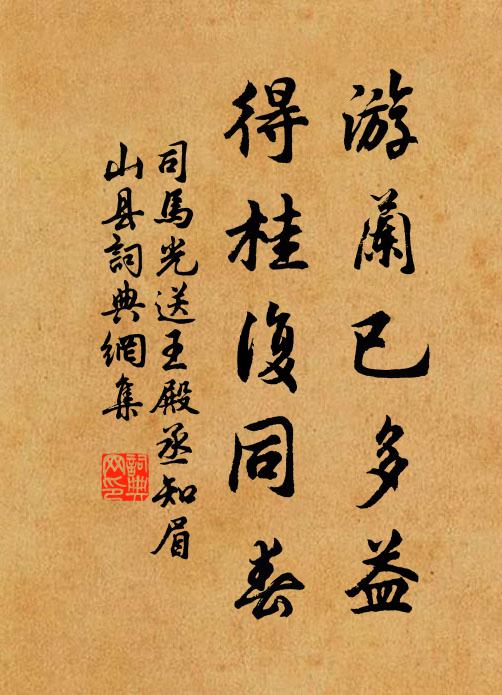 游蘭已多益
得桂復同春
司馬光送王殿丞知眉
山县詞典網集
詞典网印